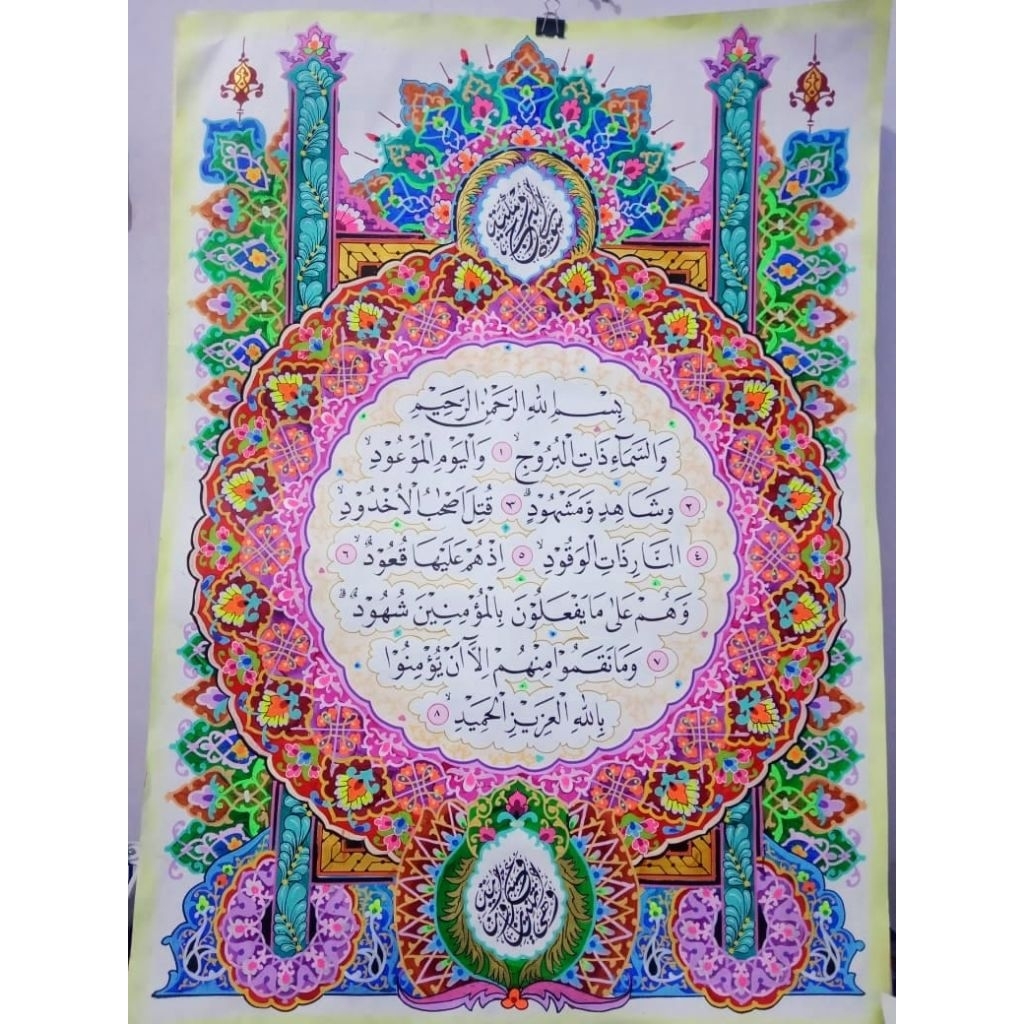 سورة البروج مكية
بِسْمِ اللّٰهِ الرَّحْمٰنِ الرَّحِيْمِ
وَالسَّمَآءِ ذَاتِ الْبُرُوْجِۙ ١ وَالْيَوْمِ الْمَوْعُوْدِۙ
٢ وَشَاهِدٍ وَّمَشْهُوْدٍۗ ٣ قُتِلَ اَصْحٰبُ الْاُخْدُوْدِۙ
٤ النَّارِ ذَاتِ الْوَقُوْدِۙ ٥ اِذْ هُمْ عَلَيْهَا قُعُوْدٌۙ ٦
وَهُمْ عَلٰى مَا يَفْعَلُوْنَ بِالْمُؤْمِنِيْنَ شُهُوْدٌۗ
٧ وَمَا نَقَمُوْا مِنْهُمْ اِلَّآ اَنْ يُّؤْمِنُوْا
بِاللّٰهِ الْعَزِيْزِ الْحَمِيْدِۙ ٨